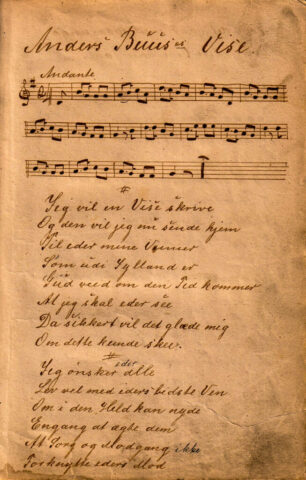 Anders Buus's Vise.
Andante
Jeg vil en Vise skrive
Og den vil jeg nu sende hjem
Til eder mine Venner
Som udi Jylland er
Gud veed om den Tid kommer
At jeg skal eder see
Da sikkert vil det glæde mig
Om dette kunde skee.
Jeg ønsker eder alle
Lev vel med eders bedste Ven
Om i den Held kan nyde
Engang at ægte dem
At Sorg og Modgang ikke
Forknytte eders Mod